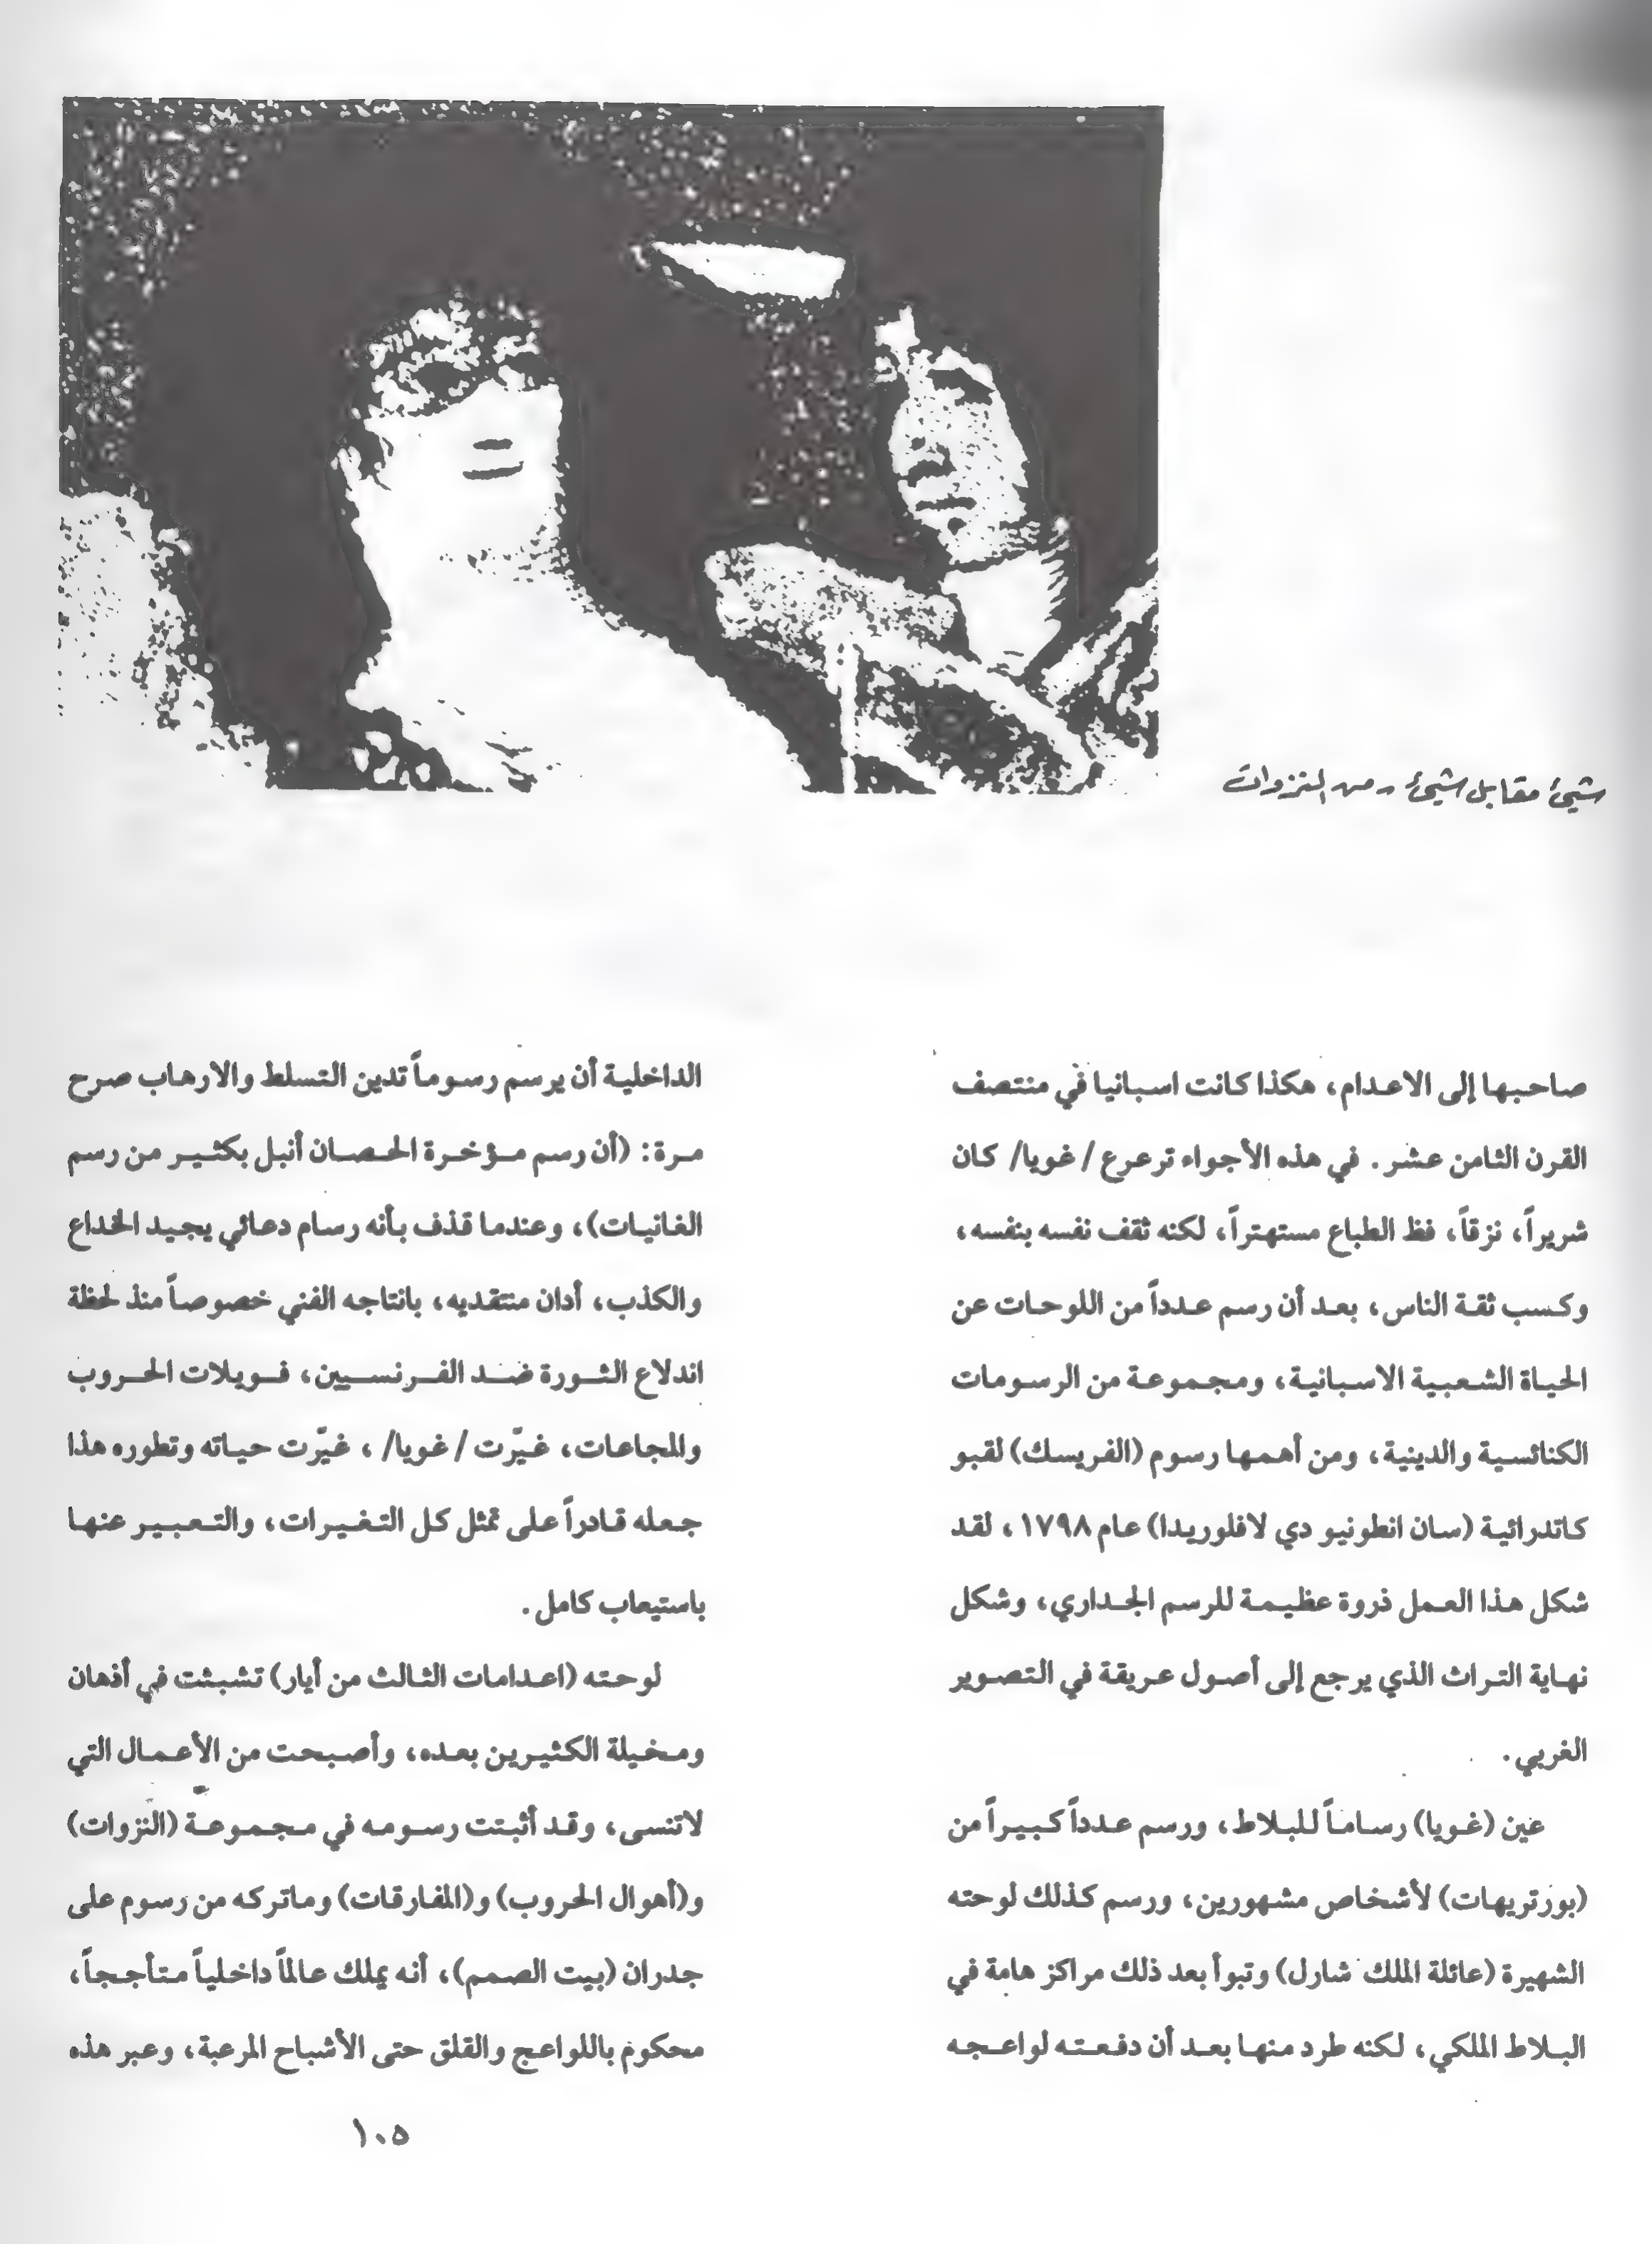 شيئ مقابل شيئ - من النزوات
صاحبها إلى الاعدام، هكذا كانت اسبانيا في منتصف
القرن الثامن عشر. في هذه الأجواء ترعرع / غويا/ كان
شريراً، نزقاً، فظ الطباع مستهتراً، لكنه ثقف نفسه بنفسه،
وكسب ثقة الناس، بعد أن رسم عدداً من اللوحات عن
الحياة الشعبية الاسبانية، ومجموعة من الرسومات
الكنائسية والدينية، ومن أهمها رسوم (الفريسك) لقبو
كاتدرائية (سان انطونيو دي لافلوريدا) عام ١٧٩٨، لقد
شكل هذا العمل ذروة عظيمة للرسم الجداري، وشكل
نهاية التراث الذي يرجع إلى أصول عريقة في التصوير
الغربي.
عين (غويا) رساماً للبلاط، ورسم عدداً كبيراً من
(بورتريهات) لأشخاص مشهورين، ورسم كذلك لوحته
الشهيرة (عائلة الملك شارل) وتبوأ بعد ذلك مراكز هامة في
البلاط الملكي، لكنه طرد منها بعد أن دفعته لواعجه
الداخلية أن يرسم رسوماً تدين التسلط والارهاب صرح
مرة: (أن رسم مؤخرة الحصان أنبل بكثير من رسم
الغانيات)، وعندما قذف بأنه رسام دعائي يجيد الخداع
والكذب، أدان منتقديه، بانتاجه الفني خصوصاً منذ لحظة
اندلاع الثورة ضد الفرنسيين، فويلات الحروب
والمجاعات، غيّرت / غويا/ ، غيّرت حياته وتطوره هذا
جعله قادراً على تمثل كل التغيرات، والتعبير عنها
باستيعاب كامل.
لوحته (اعدامات الثالث من أيار) تشبثت في أذهان
ومخيلة الكثيرين بعده، وأصبحت من الأعمال التي
لاتنسى، وقد أثبتت رسومه في مجموعة (النزوات)
و(أهوال الحروب) و(المفارقات) وماتركه من رسوم على
جدران (بيت الصمم)، أنه يملك عالماً داخلياً متأججاً،
محكوم باللواعج والقلق حتى الأشباح المرعبة، وعبر هذه
١٠٥